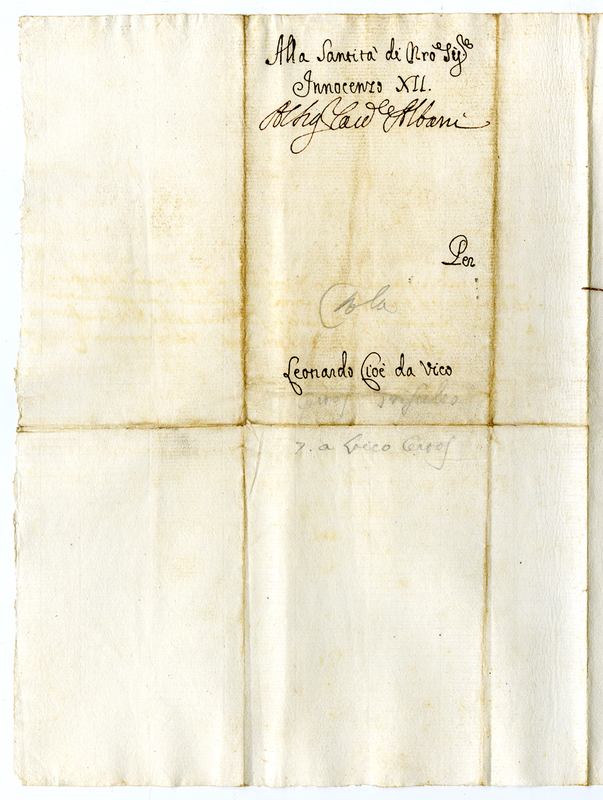 Alla Santità di Nro Sigre
Innocenzo XII.
Al Sig Card.le Albani
Per
Leonardo Cioè da Vico
7. a Vico